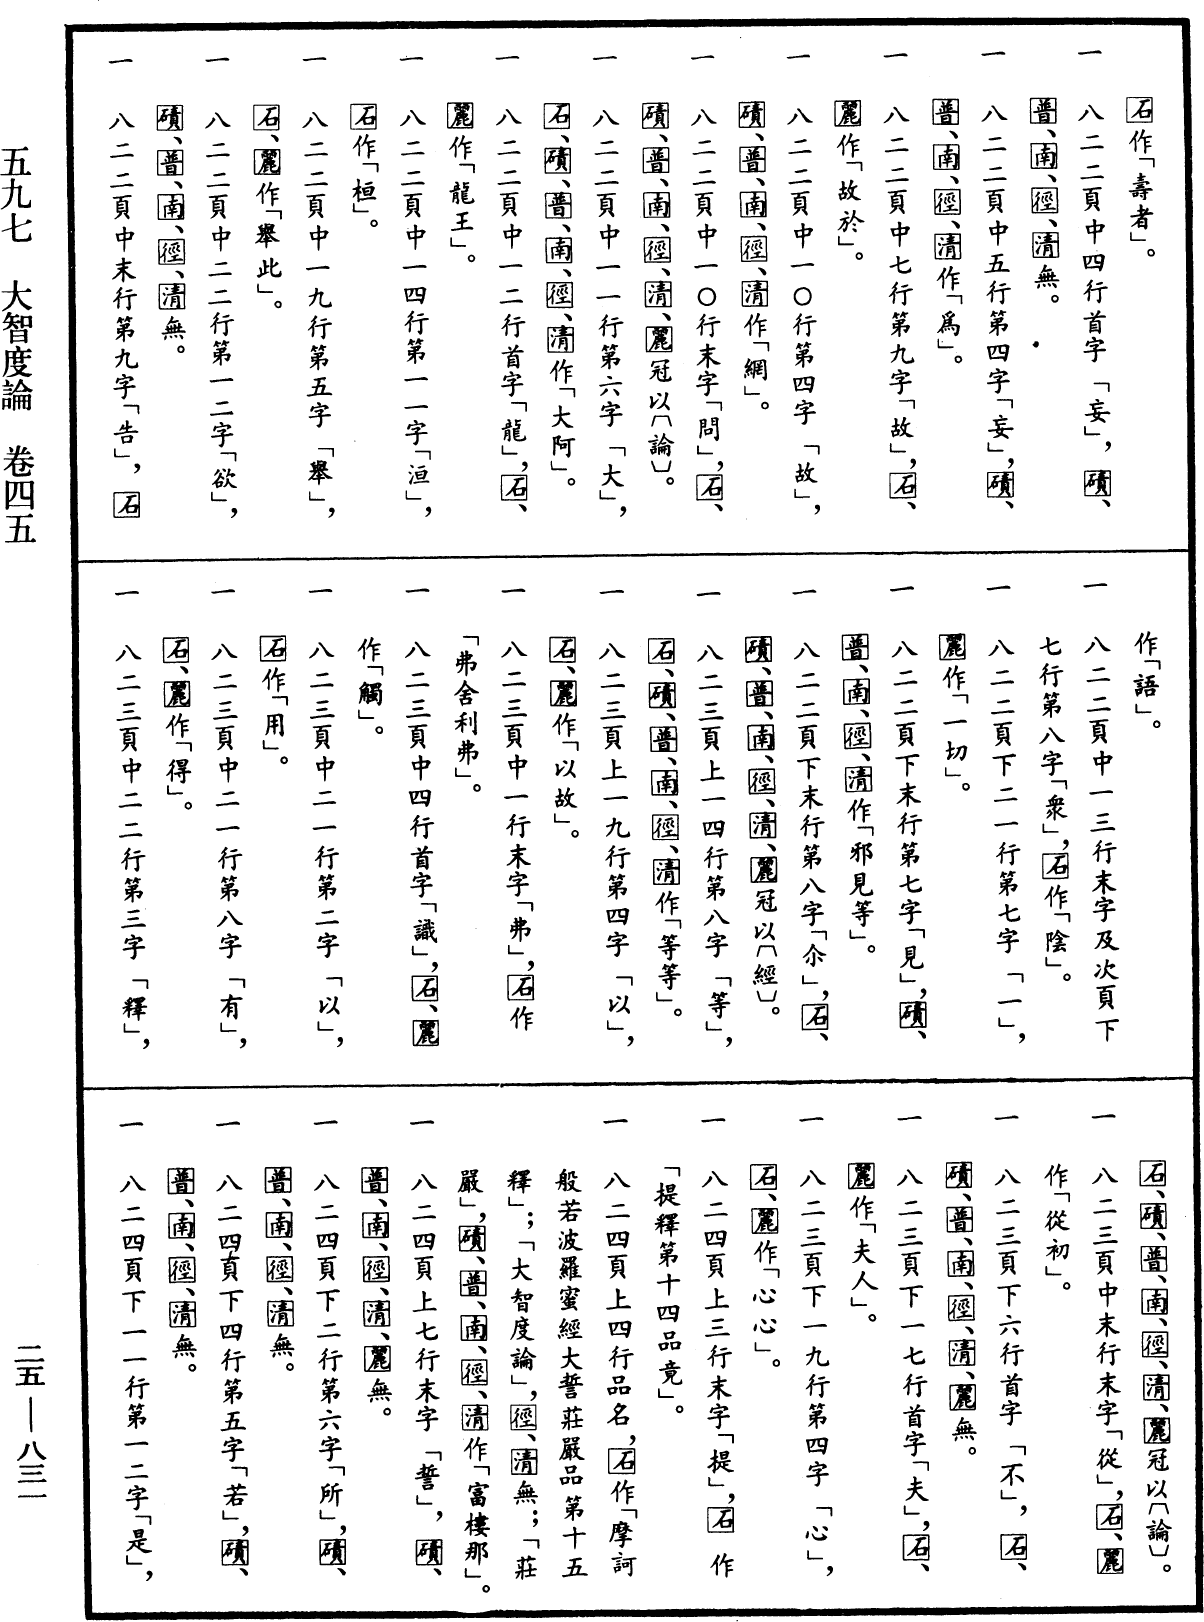 石作「壽者」。
一　八二二頁中四行首字「妄」，磧、
普、南、徑、清無。
一　八二二頁中五行第四字「妄」，磧、
普、南、徑、清作「爲」。
一　八二二頁中七行第九字「故」，石、
麗作「故於」。
一　八二二頁中一〇行第四字「故」，
磧、普、南、徑、清作「網」。
一　八二二頁中一〇行末字「問」，石、
磧、普、南、徑、清、麗冠以〔論〕。
一　八二二頁中一一行第六字「大」，
石、磧、普、南、徑、清作「大阿」。
一　八二二頁中一二行首字「龍」，石、
麗作「龍王」。
一　八二二頁中一四行第一一字「洹」，
石作「桓」。
一　八二二頁中一九行第五字「舉」，
石、麗作「舉此」。
一　八二二頁中二二行第一二字「欲」，
磧、普、南、徑、清無。
一　八二二頁中末行第九字「告」，石
作「語」。
一　八二二頁中一三行末字及次頁下
七行第八字「衆」，石作「陰」。
一　八二二頁下二一行第七字「一」，
麗作「一切」。
一　八二二頁下末行第七字「見」，磧、
普、南、徑、清作「邪見等」。
一　八二二頁下末行第八字「尒」，石、
磧、普、南、徑、清、麗冠以〔經〕。
一　八二三頁上一四行第八字「等」，
石、磧、普、南、徑、清作「等等」。
一　八二三頁上一九行第四字「以」，
石、麗作「以故」。
一　八二三頁中一行末字「弗」，石作
「弗舍利弗」。
一　八二三頁中四行首字「識」，石、麗
作「觸」。
一　八二三頁中二一行第二字「以」，
石作「用」。
一　八二三頁中二一行第八字「有」，
石、麗作「得」。
一　八二三頁中二二行第三字「釋」，
石、磧、普、南、徑、清、麗冠以〔論〕。
一　八二三頁中末行末字「從」，石、麗
作「從初」。
一　八二三頁下六行首字「不」，石、
磧、普、南、徑、清、麗無。
一　八二三頁下一七行首字「夫」，石、
麗作「夫人」。
一　八二三頁下一九行第四字「心」，
石、麗作「心心」。
一　八二四頁上三行末字「提」，石作
「提釋第十四品竟」。
一　八二四頁上四行品名，石作「摩訶
般若波羅蜜經大誓莊嚴品第十五
釋」；「大智度論」，徑、清無；「莊
嚴」，磧、普、南、徑、清作「富樓那」。
一　八二四頁上七行末字「誓」，磧、
普、南、徑、清、麗無。
一　八二四頁下二行第六字「所」，磧、
普、南、徑、清無。
一　八二四頁下四行第五字「若」，磧、
普、南、徑、清無。
一　八二四頁下一一行第一二字「是」，
五九七　大智度論　卷四五
二五—八三一